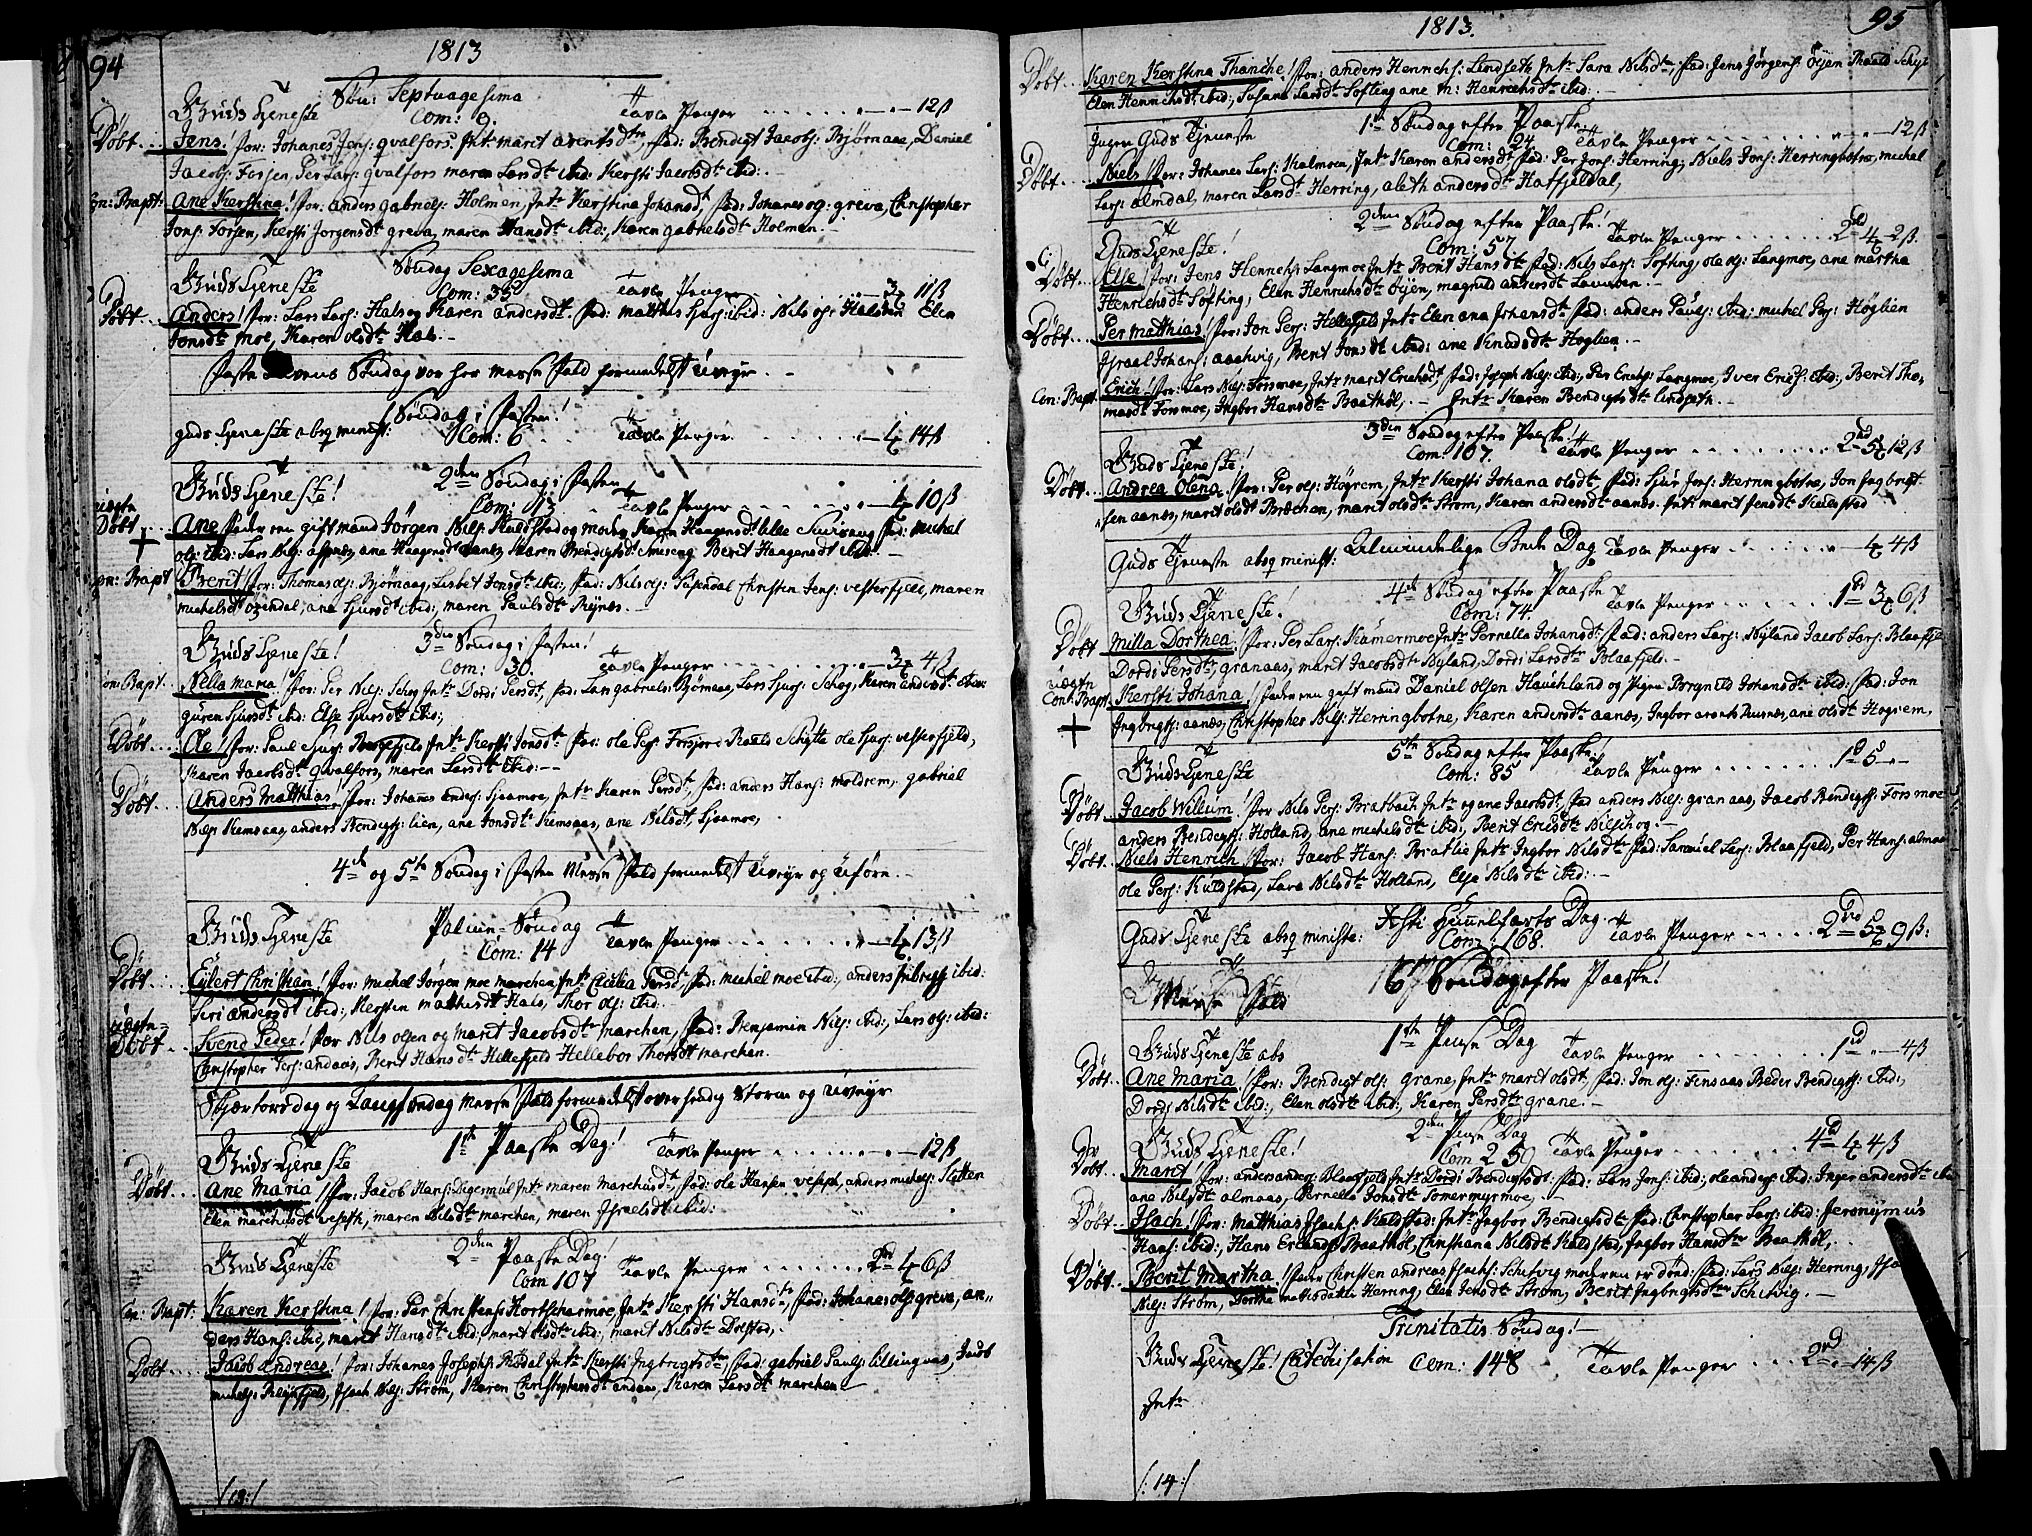 94
1813
Søn: Septuagesima
Guds Tjeneste Com: 9. Tavle Penger 12 ß
Døbt Jens! For: Johanes Jons: qvalfors. Int: maret arentsdtr, fad: Bendigt Jacobs: Bjørnaae, Daniel
Jacobs: Forsjen, Per Lars: qvalfors maren Larsdtr ibid: Kersti Jacobsdtr ibid: -
Con: Bapt: Ane Kerstina! For: anders gabriels: Holmen, Intr Kerstina Johansdt, fad: Johanes ols: greva, Christopher
Jons: Forsen, Kersti Jorgensdt greva, maren Hansdt ibid:, Karen gabrielsdt Holmen. -
Søndag Sexagesima
Guds Tjeneste Com: 33 Tavle Penger 3 11 ß
Døbt Anders! For: Lars Lars: Hals og Karen andersdt. fad: matthis ibid: Nils ols: Halsen Elen
Jonsdt moe, Karen olsdt Hals. -
Faste Søndag var her messe fald formedelst Uveyr. -
1 Søndag i Fasten!
guds Tjeneste absq minist: Com: 6 Tavle Penger 4 14 ß
2den Søndag i Fasten
Guds Tjeneste! Com: 13 Tavle Penger 4 10 ß
uægte
Døbt + Ane fader en gift mand Jørgen Nils: Kuldstad og moder Karen Haagensdt lille fad: michel
ols: ibid: Lars Nils: ane Haagensdt Karen Bendigtsdt Berit Haagensdt ibid: -
Con: Bapt Berit! For: Thomas ols: Bjørnaag: Lisbet Jonsdt ibid:, fad: Nils ols: Christen Jens: vesterfjeld, maren
michelsdt ane ibid:, maren Paulsdt Rynes. -
3die Søndag i Fasten!
Guds Tjeneste! Com: 30. Tavle Penger 3 4 ß
Con: Bapt. Nella maria. For: Per Nils: Schog Intr Dordi Persdt, fad: Lars gabriels: Bjørnaae, Lars Schog, Karen andersdt ibid:
guren ibid: Else ibid:,
Døbt Ole! For: Paul Intr Kersti Jonsdt fad: ole Pers: Forsjord Roald Schytte ole vesterfjeld,
Karen Jacobsdt qvalfors, maren Larsdt ibid: -
Døbt Anders Matthias! For: Johanes anders: Sjaamoe, Intr Karen Persdt, fad: anders Hans: moldrem, gabriel
Nils: Kemsaas, anders Bendigts: lien, ane Jonsdtr Kemsaas, ane Nilsdt, Sjaamoe,
4de og 5te Søndag i Fasten Messe fald formedelst Uveyr og Uføre. -
Palme-Søndag
Guds Tjeneste Com: 14 Tavle Penger 4 13 ß
Døbt Eilert Christian! For: michel Jörgen moe marchen, Intr Cicilia Persdt, fad: michel moe ibid:, anders ibid:
Siri andersdt ibid:, Kersten matthisdt Hals, Thor ols: ibid.
uægte
Døbt Svend Peder! For Nils olsen og Marit Jacobsdtr marchen, fad: Benjamin Nils: ibid:, Lars ols: ibid:
Christopher Pers: andaas, Berit Hansdt Hellefjeld Hellebor Thorsdt marchen.
Skjærtorsdag og Langfredag Messe fald formedelst overhendig Storm og Uveyr
1te Paaske Dag!
Guds Tjeneste Tavle Penger 12 ß
Døbt Ane Maria! For: Jacob Hans: Degermul Intr maren marchusdtr, fad: ole Hansen veseth, anders michels: Slotten
Elen marchusdt veseth, maren Nilsdt marchen, maren Israelsdt ibid:
2den Paaske Dag!
Guds Tjeneste Com 107 Tavle Penger 2rd 4 6 ß
Con: Bapt: Karen Kerstina! For: Per christens: Kortscharmoe, Intr Kersti Hansdtr, fad: Johanes ols greva, an=
ders Hans: ibid, marit Hansdt ibid: marit olsdt ibid:, marit Nilsdt Dolstad,
Døbt Jacob Andreas! For: Johanes Josephs: Intr Kersti Ingbrigtsdtr, fad: gabriel Pauls: lillingnas, Jacob
michels: Isach Nils: Strøm, Karen Christophersdt andaas, Karen Larsdt marchen. -
/:13:/
1813.
95
Døbt Karen Kerstina Thinche! For: anders Henrichs: Lindseth Intr Sara Nilsdtr, fad: Jens Jørgens: Øyen Roald Schyt
Elen Henrichsdt ibid:, Susana Larsdtr Søfting ane m: Henrichsdt ibid: -
1te Søndag efter Paaske
Ingen Guds Tjeneste Com: 24 Tavle Penger 12 ß
Døbt Niels! For: Johanes Lars: Kalmoen, Intr Karen andersdt fad: Per Jons: Herring, Niels Jons: Herringbotne, michel
Lars: almdal, maren Larsdt Herring, aleth andersdt Hatfjeldal,
2den Søndag efter Paaske!
Guds Tjeneste! Com: 57 Tavle Penger 2rd 4 2 ß.
Døbt Else! For: Jens Henrichs: Langmoe Intr Berit Hansdt fad: Nils Lars: Søfting, ole ols: Langmoe, ane martha
Henrichsdt Søfting, Elen Henrichsdt Øyen, magnild andersdt -
Døbt Per Matthias! For: Jon Pers: Hellefjeld Intr Elen ana Johansdt fad: anders Pauls: ibid: michel Pers: Høglien
Israel Johans: aachvig, Berit Jonsdt ibid: ane Knudsdtr Høglien. -
Con: Bapt. Erich! For: Lars Nils: Forsmoe, Intr marit Erichsdt, fad: Joseph Nils: ibid:, Per Erichs: Langmoe, Iver Erichs: ibid:, Berit Tho,
masdt Forsmoe, Ingbor Hansdtr Baathøl, - Intr Karen Bendigtsdtr lindseth. -
3den Søndag efter Paaske!
Guds Tjeneste! Com: 107. Tavle Penger 2rd 5 12 ß
Døbt Andrea Olena. For: Per ols: Høgrem, Intr Kersti Johana olsdt fad: Siur Jons: Herringbotne, Jon Ingbrigt
sen aanes, marit olsdt Brechen, marit olsdt Strøm, Karen andersdt aanes. Intr marit Jensdt Kuldstad
Guds Tjeneste absq minist: Almindelige Bede Dag Tavle Penger 4 4 ß
4de Søndag efter Paaske
Guds Tjeneste! Com: 74. Tavle Penger 1rd 3 6 ß
Døbt Milla Dorthea! For: Per Lars: Kamermoe Intr Pernella Johansdt fad: anders Lars: Nyland Jacob Lars: Blaafje
Dordi Persdtr, granaas, marit Jacobsdtr Nyland, Dordi Larsdtr Blaafjeld. -
uægte
Con: Bapt. + Kersti Johana! Fader en gift mand Daniel olsen Hauchland og Pigen Bergnild Johansdt ibid: fad: Jon
Ingbrigts: aanes, Christopher Nils: Herringbotne, Karen andersdt aanes, Ingbor arents Rusnes, ane olsdt Høgrem.
5te Søndag efter Paaske!
Guds Tjeneste Com: 85 Tavle Penger 1rd 5 -
Døbt Jacob Willum! For Nils Pers: Bratbach Intr og ane Jacobsdt, fad anders Niels: granaas, Jacob Bendigts: Forsmoe
anders Bendigts: Holland, ane michelsdt ibid:, Berit Ericsdtr Nilschog. -
Døbt Niels Henrich! For: Jacob Hans: Bratlie Intr Ingbor Nilsdtr fad: Samuel Lars: Blaafjeld, Per Hans: almaa
ole Pers: Kuldstad, Sara Nilsdtr Holland, Else Nilsdt ibid: -
Xsti Himmelfarts Dag.
Guds Tjeneste absq ministe: Com: 168. Tavle Penger 2rd 5 9 ß:
6te Søndag efter Paaske!
Messe fald
1te Pintse Dag
Guds Tjeneste abs Tavle Penger 1rd 4 ß
Døbt Ane Maria! For: Bendigt ols: grane, Intr marit olsdt, fad: Jon ols: Finsaas Peder Bendigts: ibid:,
Dordi Nilsdt ibid:, Elen olsdt ibid:, Karen Persdt grane. -
2den Pintse Dag
Guds Tjeneste! Com 250 Tavle Penger 4rd 4 4 ß
Døbt Maret! For: anders anders: Blaafjeld Intr Dordi Bendigtsdt. fad: Lars Jons: ibid:, ole anders: ibid: Inger andersdt ibid
ane Nilsdt almaas, Pernella Jonsdt Somermyrmoe, -
Døbt Isach! For: Matthias Isachs: Kuldstad: Intr Ingbor Bendigtsdtr fad: Christopher Lars: ibid: Jeronymus
Hans: ibid:, Hans Erlands: Baathøl, Christiana Nilsdt Kuldstad, Ingbor Hansdtr Baathøl,
Døbt Berit Martha! fader Christen andreas Isachs: Schevig moderen er død: fad: Lars Nils: Herring, Isa
Nils: Strøm, Dorthe mathisdatter Herring, Elen Jensdt Strøm, Berit Ingbrigtsdtr Schevig. -
Trinitatis Søndag! -
Guds Tjeneste! Catechisation Com: 148 Tavle Penger 2rd 14 ß
Intr
/:14:/